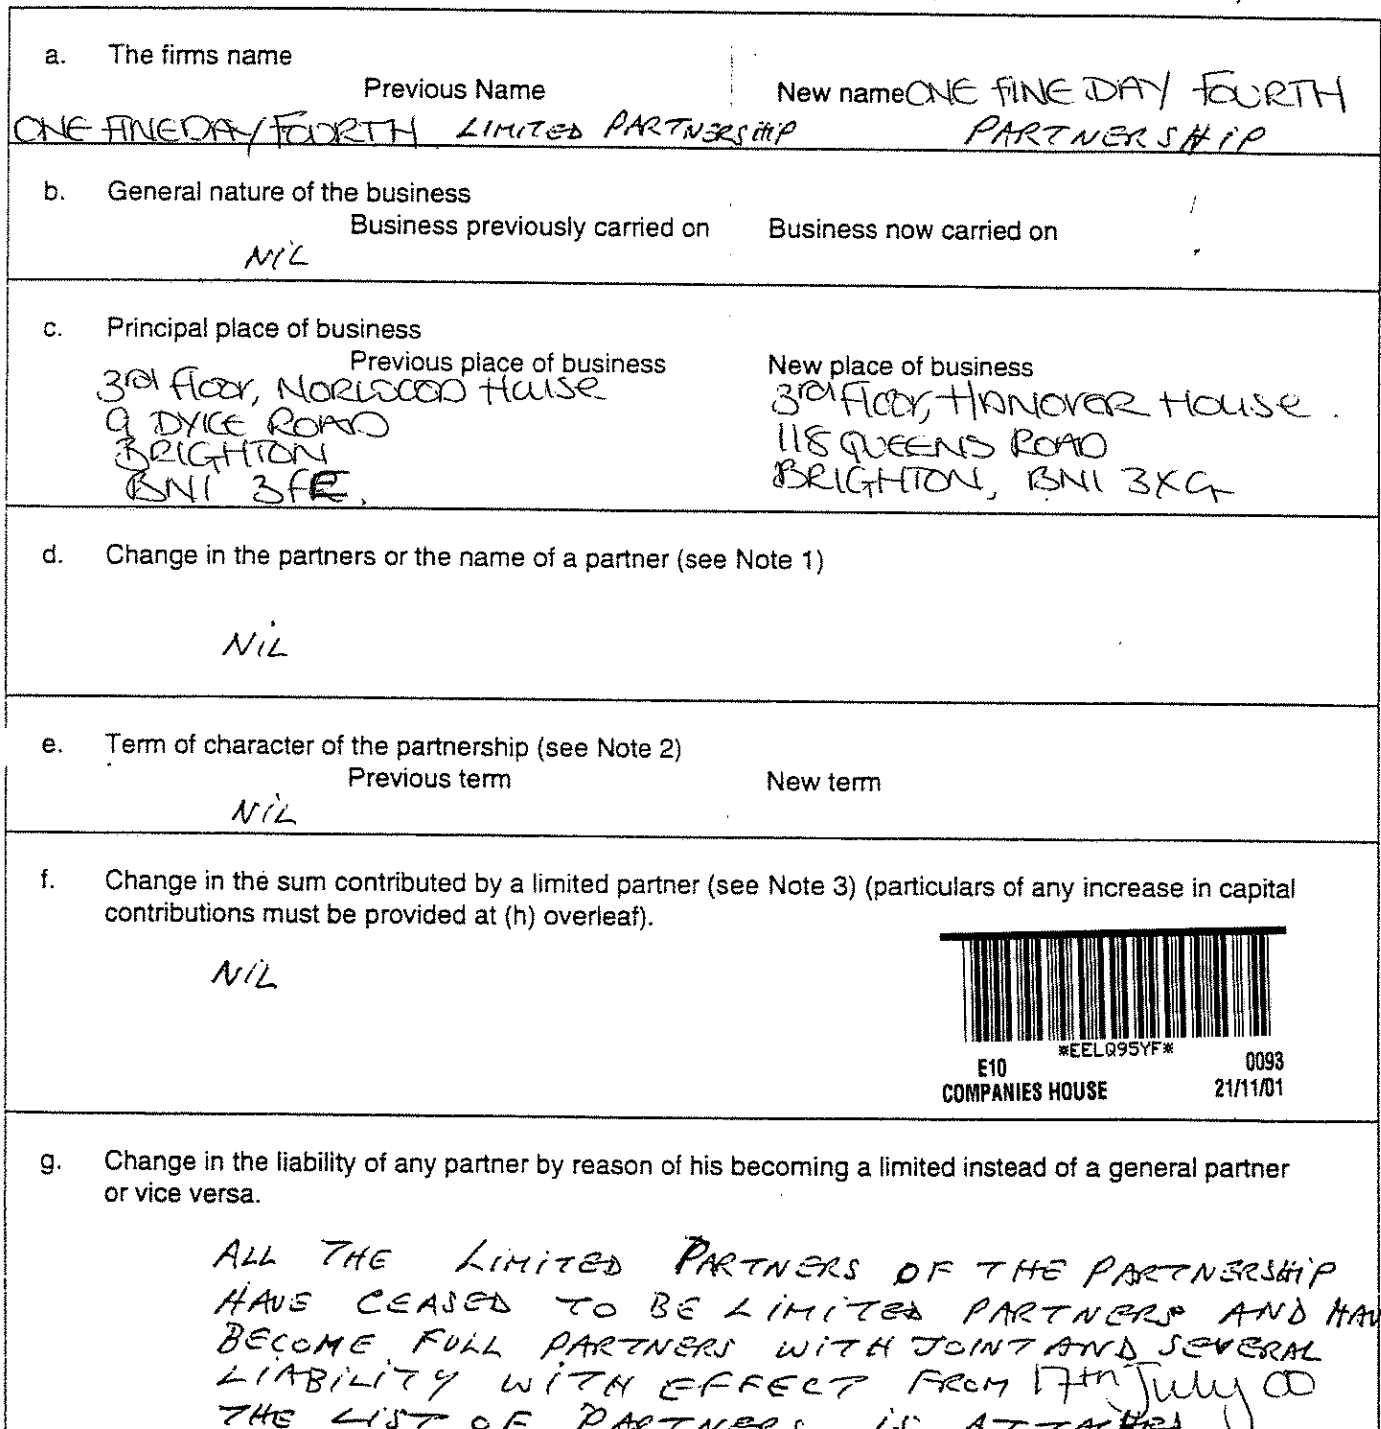 a. The firms name
Previous Name
New name ONE FINE DAY FOURTH
ONE FINE DAY FOURTH LIMITED PARTNERSHIP
PARTNERSHIP
b. General nature of the business
Business previously carried on
Business now carried on
NIL
c. Principal place of business
Previous place of business
New place of business
3rd Floor, NORWOOD House
9 DYKE ROAD
BRIGHTON
BN1 3FE.
3rd Floor, HANOVER House.
118 QUEENS ROAD
BRIGHTON, BN1 3XG
d. Change in the partners or the name of a partner (see Note 1)
NIL
e. Term of character of the partnership (see Note 2)
Previous term
New term
NIL
f. Change in the sum contributed by a limited partner (see Note 3) (particulars of any increase in capital
contributions must be provided at (h) overleaf).
NIL
*EELQ95YF*
E10 0093
COMPANIES HOUSE 21/11/01
g. Change in the liability of any partner by reason of his becoming a limited instead of a general partner
or vice versa.
ALL THE LIMITED PARTNERS OF THE PARTNERSHIP
HAVE CEASED TO BE LIMITED PARTNERS AND HAV
BECOME FULL PARTNERS WITH JOINT AND SEVERAL
LIABILITY WITH EFFECT FROM 17th July 00
THE LIST OF PARTNERS IS ATTACHED